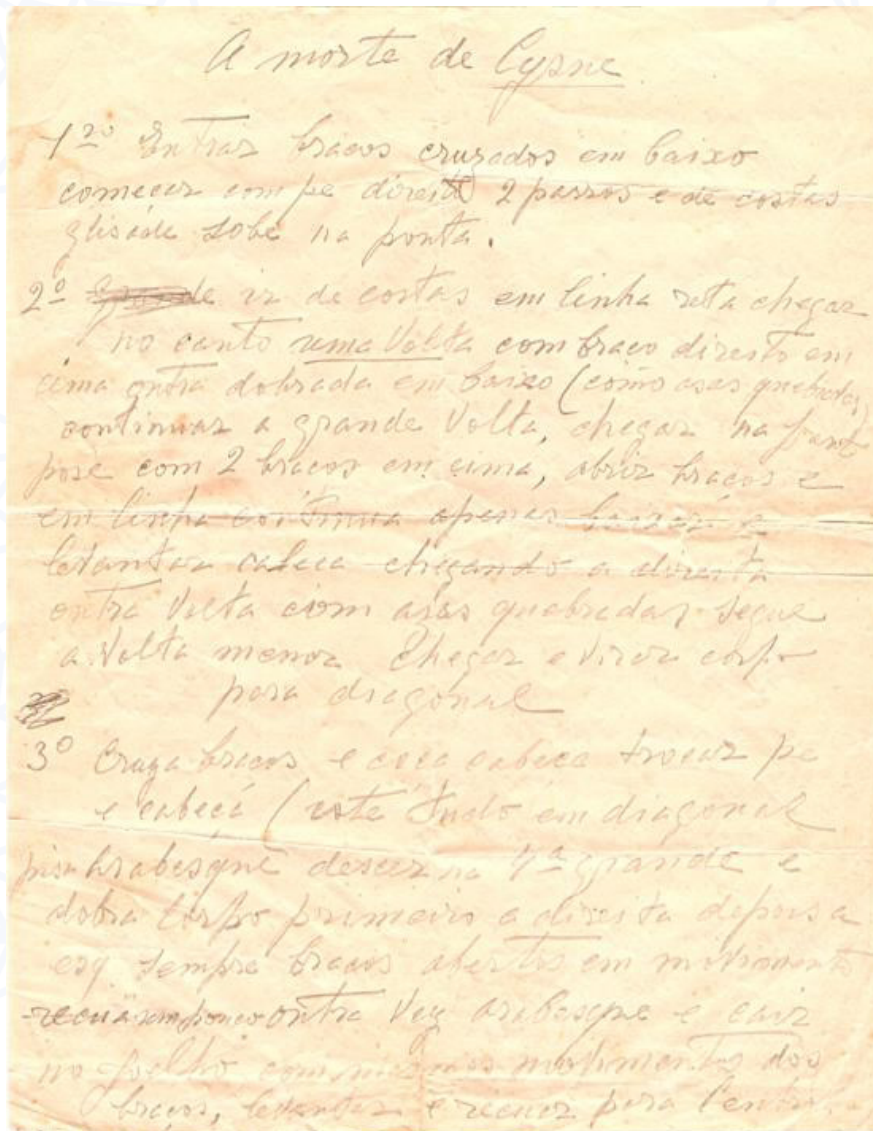 A morte de Cysne
1ro Entrar braços cruzados em baixo
começar com pe direito 2 passos e de costas
glisade sobe na ponta.
2º ir de costas em linha reta chegar
no canto uma Volta com braço direito em
cima outra dobrada em baixo (como asas quebradas)
continuar a grande Volta, chegar na
pose com 2 braços em cima, abrir braços e
em linha continua apenas baixar e
levantar cabeca chegando a direita
outra Volta com asas quebradas segue
a Volta menor Chegar e virar corpo
para diagonal
3º Cruza braços e cabeca trocar pe
e cabeça (este tudo em diagonal
arabesque descer na 4ª grande e
dobra corpo primeiro a direita depois a
esq sempre braços abertos em movimento
recua um pouco outra vez arabesque e cair
no joelho com mesmos movimentos dos
braços, levantar e recuar para